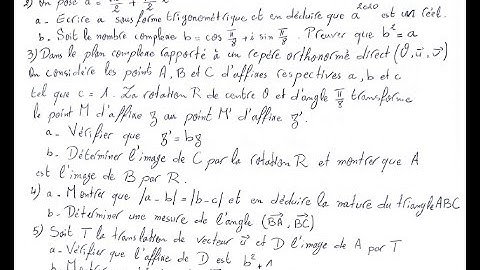 2) On pose a = √2/2 + √2/2 i
a - Ecrire a sous forme trigonométrique et en déduire que a^2020 est un réel.
b. Soit le nombre complexe b = cos π/8 + i sin π/8. Prouver que b² = a
3) Dans le plan complexe rapporté à un repère orthonormé direct (O, u⃗, v⃗)
On considère les points A, B et C d'affixes respectives a, b et c
tel que c = 1. La rotation R de centre O et d'angle π/8 transforme
le point M d'affixe z au point M' d'affixe z'.
a - Vérifier que z' = bz
b. Déterminer l'image de C par la rotation R et montrer que A
est l'image de B par R.
4) a - Montrer que |a-b| = |b-c| et en déduire la nature du triangle ABC
b - Déterminer une mesure de l'angle (BA⃗, BC⃗)
5) Soit T la translation de vecteur u⃗ et D l'image de A par T
a - Vérifier que l'affixe de D est b² + 1
b - Montrer que